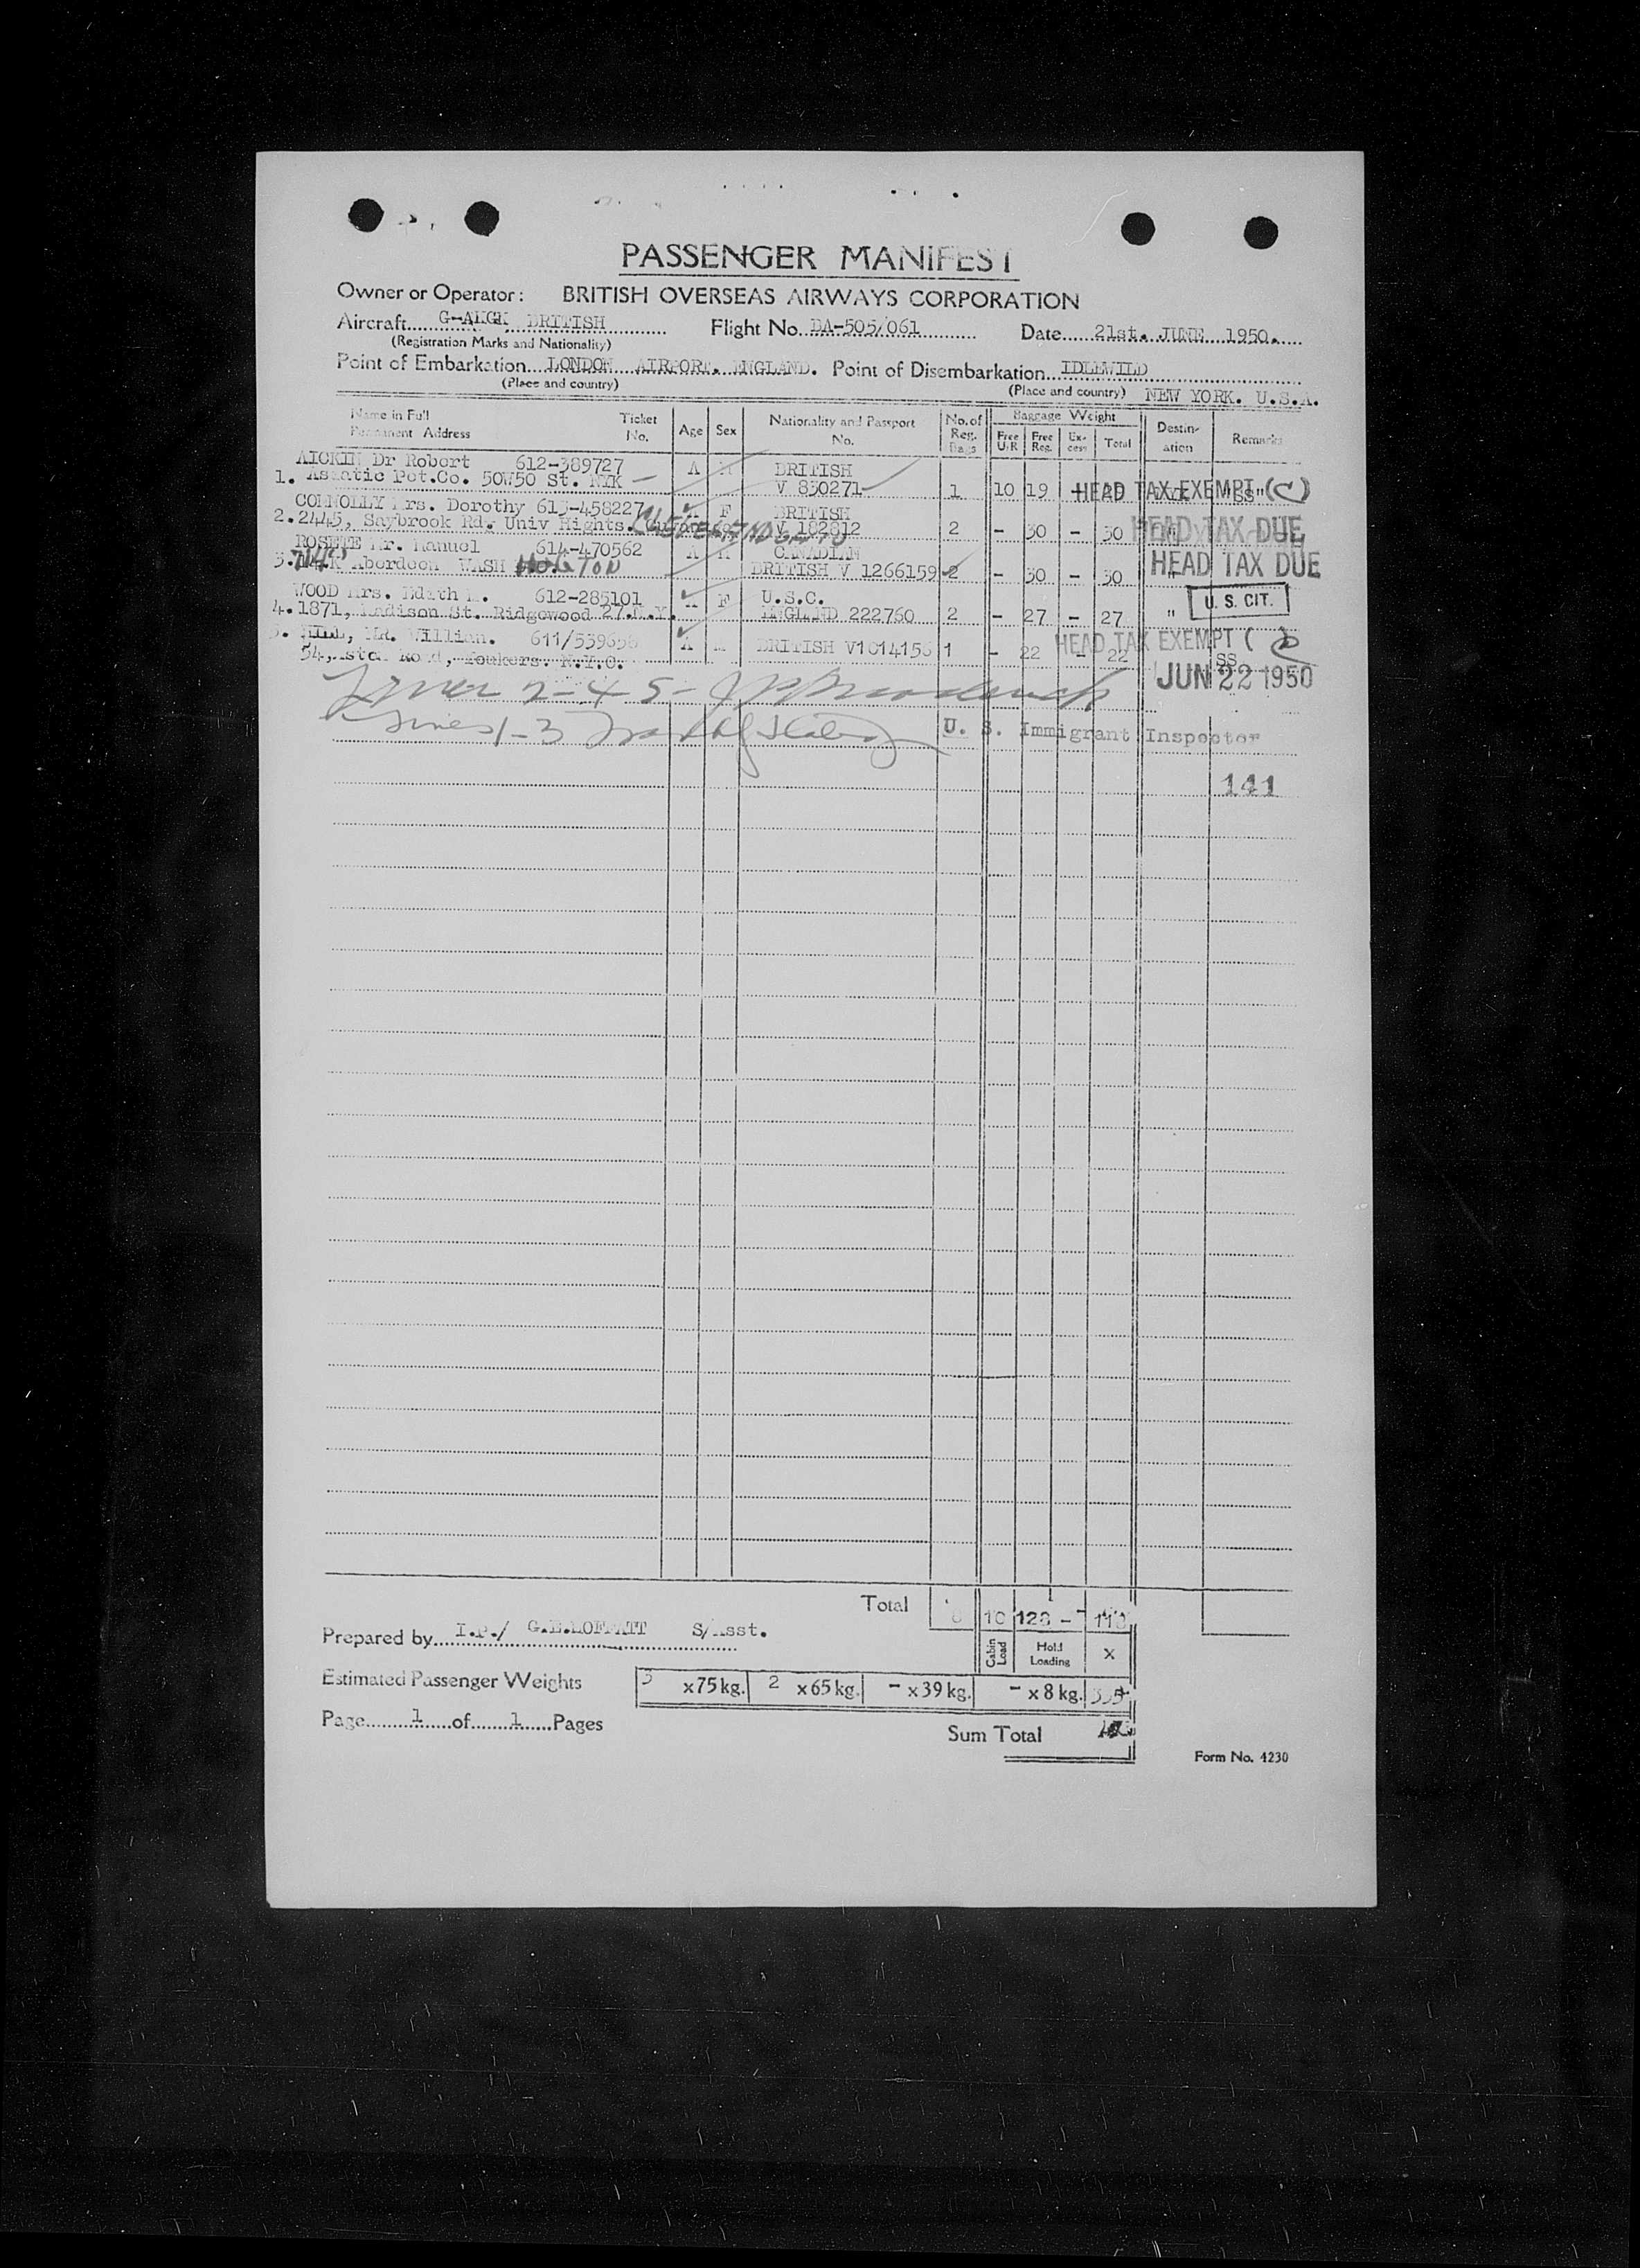 PASSENGER MANIFEST
Owner or Operator: BRITISH OVERSEAS AIRWAYS CORPORATION
Aircraft BRITISH Flight No. BA-505/061 Date 21st. JUNE 1950.
(Registration Marks and Nationality)
Point of Embarkation LONDON AIRPORT. ENGLAND. Point of Disembarkation IDLEWILD
(Place and country) (Place and country) NEW YORK. U.S.A.
Name in Full Permanent Address Ticket No. Age Sex Nationality and Passport No. No. of Reg. Bags Baggage Weight Free U/R Free Reg. Ex-cess Total Destin-ation Remarks
AICKIN Dr Robert 612-389727 A M BRITISH
1. Asiatic Pet.Co. 50W50 St. NYK V 830271 1 10 19 - HEAD TAX EXEMPT (C)
CONNOLLY Mrs. Dorothy 613-458227 A F BRITISH
2. 2445, Saybrook Rd. Univ Hights. CLEVELAND V 182812 2 - 30 - 30 HEAD TAX DUE
ROSETE Mr. Manuel 614-470562 A M CANADIAN
3. Aberdeen WASH BRITISH V 1266159 2 - 30 - 30 " HEAD TAX DUE
WOOD Mrs. Edith 612-285101 A F U.S.C.
4. 1871, Madison St. Ridgewood 27.N.Y. ENGLND 222760 2 - 27 - 27 " U. S. CIT.
5. MR. William. 611/539656 A M BRITISH V1014156 1 - 22 - 22 HEAD TAX EXEMPT (
54, Road, Yonkers. N.Y.C. SS
JUN 22 1950
Lines 2-4-5-
Lines 1-3 U. S. Immigrant Inspector
141
Total 8 10 128 -
Prepared by I.P./ G.E.MOFFATT S/Asst. Cabin Load Hold Loading X
Estimated Passenger Weights 3 x 75 kg. 2 x 65 kg. - x 39 kg. - x 8 kg. 355
Page 1 of 1 Pages Sum Total
Form No. 4230